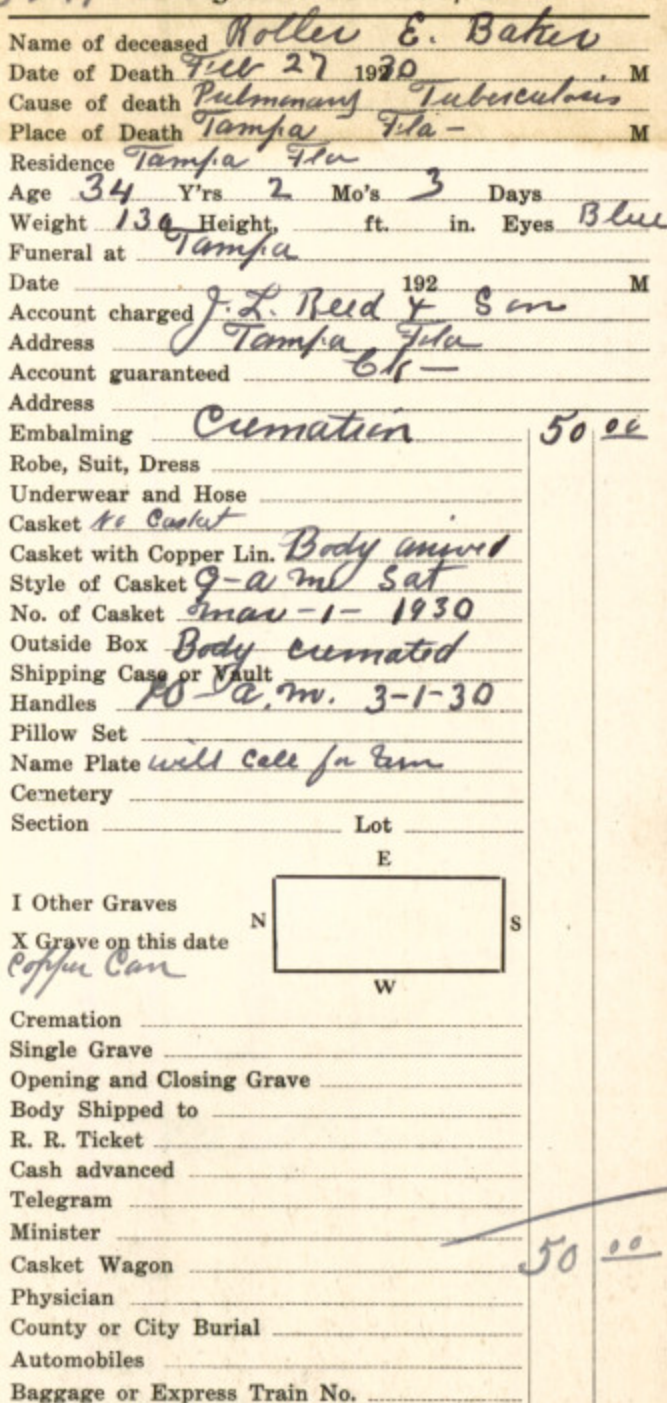 Name of deceased Roller E. Baker
Date of Death Feb 27 1930 M
Cause of death Pulmonary Tuberculosis
Place of Death Tampa Fla - M
Residence Tampa Fla
Age 34 Y'rs 2 Mo's 3 Days
Weight 130 Height, ft. in. Eyes Blue
Funeral at Tampa
Date 192 M
Account charged J. L. Reed & Son
Address Tampa Fla
Account guaranteed
Address
Embalming Cremation 50 00
Robe, Suit, Dress
Underwear and Hose
Casket No Casket
Casket with Copper Lin. Body arrived
Style of Casket 9-a m Sat
No. of Casket Mar-1- 1930
Outside Box Body cremated
Shipping Case or Vault
Handles 10-a.m. 3-1-30
Pillow Set
Name Plate will call for Urn
Cemetery
Section Lot
E
I Other Graves
N S
X Grave on this date
Copper Can
W
Cremation
Single Grave
Opening and Closing Grave
Body Shipped to
R. R. Ticket
Cash advanced
Telegram
Minister
Casket Wagon 50 00
Physician
County or City Burial
Automobiles
Baggage or Express Train No.